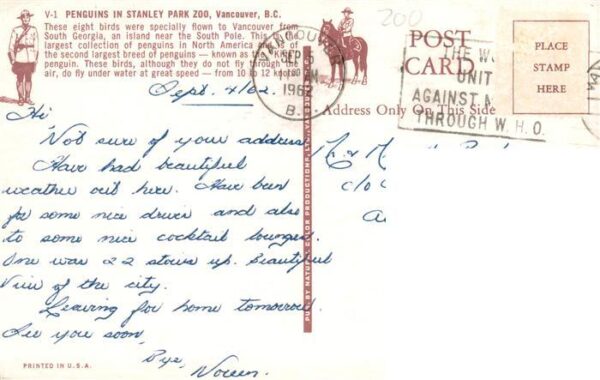 V-1 PENGUINS IN STANLEY PARK ZOO, Vancouver, B.C.
These eight birds were specially flown to Vancouver from
South Georgia, an island near the South Pole. This is the
largest collection of penguins in North America and is of
the second largest breed of penguins — known as the King
penguin. These birds, although they do not fly through the
air, do fly under water at great speed — from 10 to 12 knots.
VANCOUVER
AM
1962
B.
200
POST
CARD
PLACE
STAMP
HERE
THE W
UNIT
AGAINST M
THROUGH W.H.O.
Address Only On This Side
Sept. 4/62.
Hi
Not sure of your address
Have had beautiful
weather out here. Have been
for some nice drives and also
to some nice cocktail lounges.
One was 22 stories up. Beautiful
View of the city.
Leaving for home tomorrow
See you soon,
Bye,
Noreen.
c/o
PRINTED IN U.S.A.